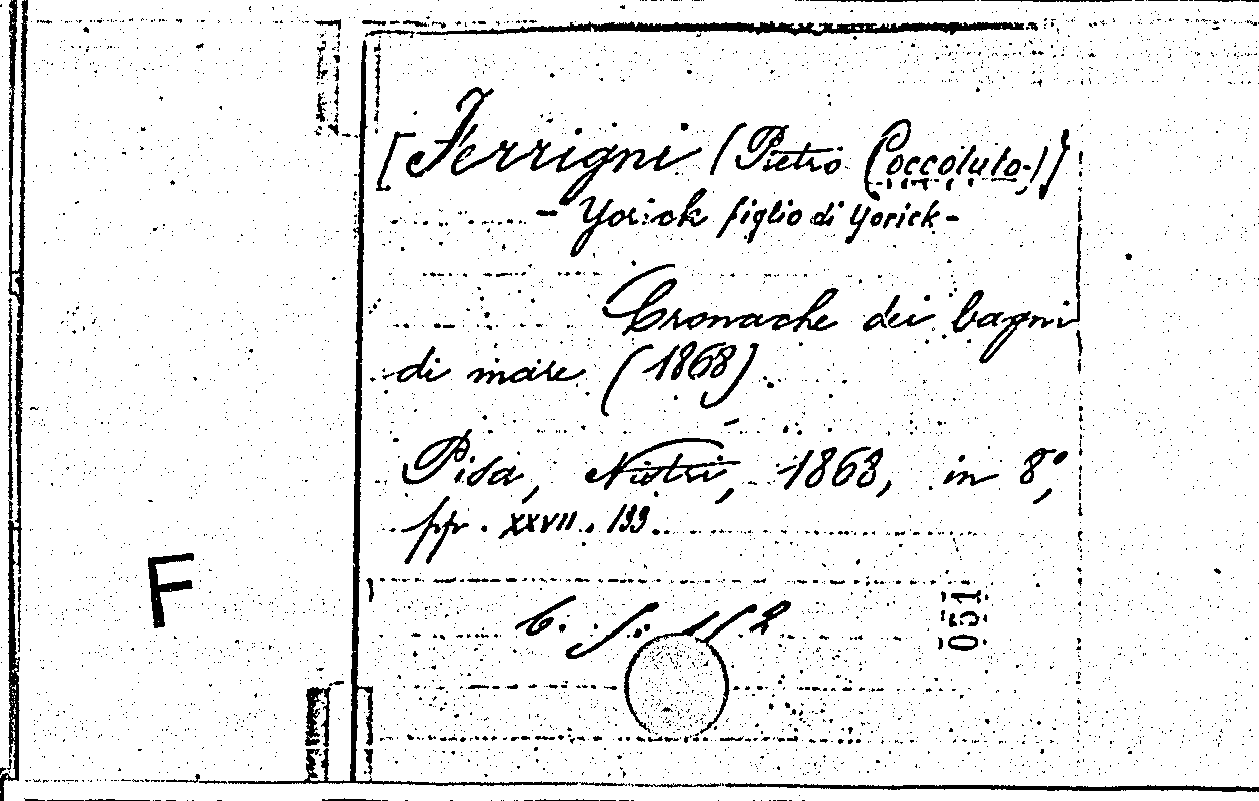 [Ferrigni (Pietro Coccoluto-)]
- Yorick figlio di Yorick -
Cronache dei bagni
di mare (1868).
Pisa, Nistri, 1868, in 8°,
pp. XXVII. 199.
F
051